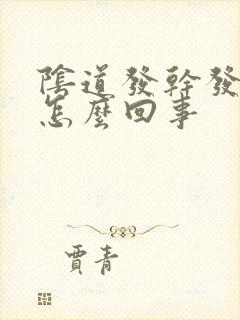 陰道發幹發
怎麼回事
賈青